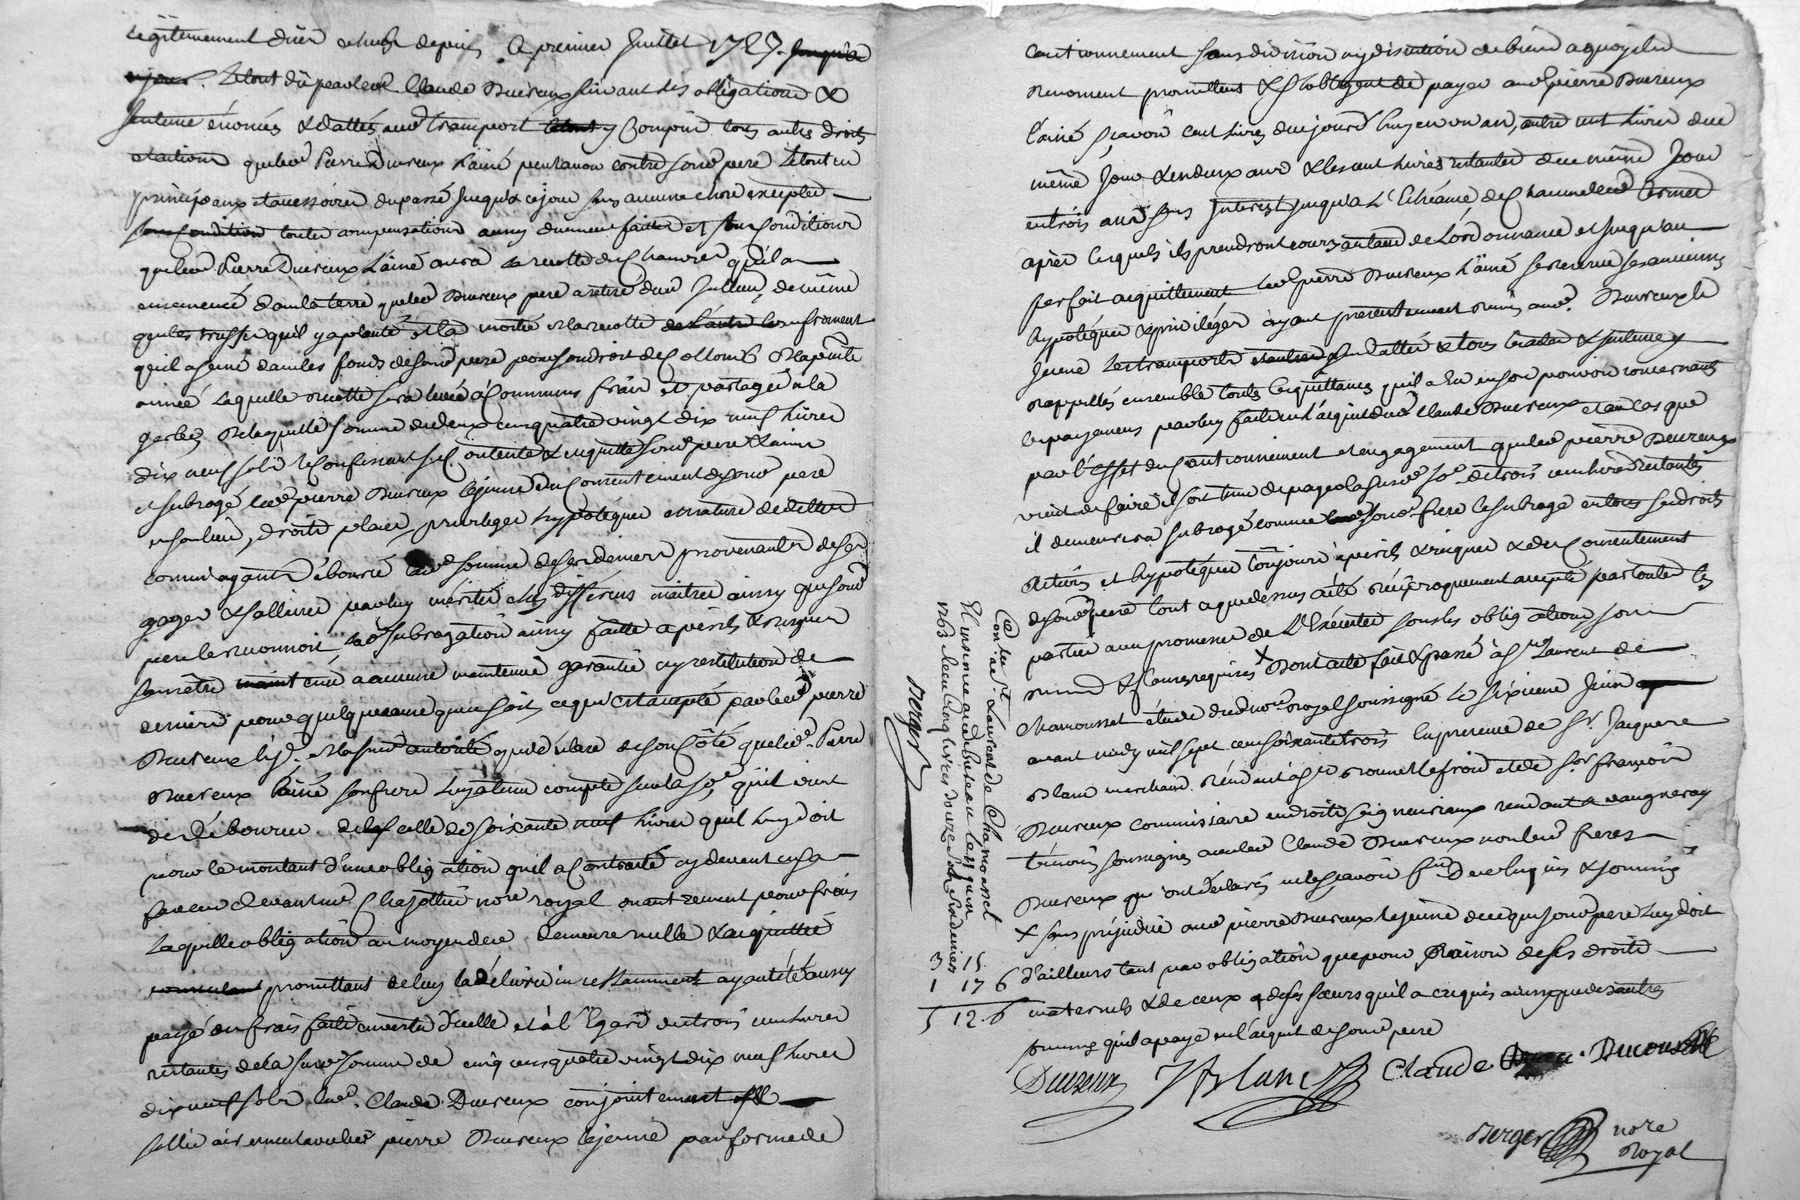 Legitimement dües echus depuis le premier Juillet 1727. jusqu'a
ce jour. Le tout dû par led. Claude Ducreux suivant les obligations &
sentence énoncés & dattés aud. transport y Compris tous autres droits
et actions que led. Pierre Ducreux L'ainé peut avoir contre sond. pere Le tout en
principaux et accessoires du passé jusqu'a ce jour sans aucune chose excepter
toutes compensations aussy duement faites et sous Conditions
que led. Pierre Ducreux L'ainé aura la recolte du Chanvre qu'il a
ensemencé dans la terre que led. Ducreux pere a retiré dud. Jullien, de même
que les truffes qu'il y a planté et la moitié de la recolte en froment
qu'il a semé dans les fonds de sond. pere pour son droit de Collonie la presente
année Laquelle recolte sera levée a Communs frais et partagée à la
gerbe, De laquelle somme de deux cens quatre vingt dix neuf livres
dix neuf sols le Confessant se Contente & en quitte sond. pere & a mis
et subrogé led. pierre Ducreux lejeune du Consentement de sond. pere
en son lieu, droits, place, privileges hypoteques et nature de dettes
comme ayant débourcé lad. somme de ses deniers provenants de ses
gages & sallaires par luy mérités chez differens maitres ainsy que sond.
pere le reconnoit, lad. subrogation ainsy faitte a perils & risques
sans être tenu a aucune maintenue garantie ny restitution de
deniers pour quelque cause que ce soit, ce qui est accepté par led. pierre
Ducreux lej.e qui déclare de son côté que led. Pierre
Ducreux l'ainé son frere luy a tenu compte sur la so.e qu'il vient
de Débourcer de celle de soixante neuf livres qu'il luy doit
pour le montant d'une obligation qu'il a Contracté cy devant en sa
faveur devant me Chazottier nore royal
Laquelle obligation au moyen de ce demeure nulle & acquittée
promettant de luy la délivrer incessamment ayant été aussy
payé des frais faits en vertu d'icelle et à l'Egard des trois cens livres
restantes de la susd. somme de cinq cens quatre vingt dix neuf livres
dix neuf sols led. Claude Ducreux conjointement
sollidairement avec led. pierre Ducreux lejeune par forme de
cautionnement sans division ny discution de biens a quoy ils
renoncent promettent & s'obligent de payer aud. pierre Ducreux
l'ainé sçavoir cent livres du jourd'huy en un an, autre cent livres du
même Jour & en deux ans & les cent livres restantes du même Jour
en trois ans sans Interest jusqu'a L'Echéance de Chacun desd. termes
après lesquels ils prendront cours au taux de Lordonnance et jusqu'au
parfait acquittement led. pierre Ducreux L'ainé se reserve ses anciens
hypoteques & privileges ayant presentement remis aud. Ducreux le
Jeune les transports susdattés & tous traités & sentences y
rappellés ensemble toutes les quittances qu'il a eu en son pouvoir concernants
les payemens par luy faits en l'acquit dud. Claude Ducreux et au cas que
par l'effet du Cautionnement et engagement que led. pierre Ducreux
vient de faire il soit tenu de payer la susd. so.e de trois cens livres restantes
il demeurera subrogé comme sond. frere le subroge en tous ses droits
actions et hypoteques toujours a perils & risques & du Consentement
de sond. pere tout ce que dessus a été réciproquement accepté par toutes les
parties avec promesse de L'Executer sous les obligations soumis.
renon. & clauses requises X Dont acte fait & passé à St. Laurent de
Chamousset étude dud. nore royal soussigné le sixieme Juin
avant midy mil sept cens soixante trois En presence de Sr. Jacques
Blanc marchand Résidant à St. Bonnet le froid et de Sr. françois
Ducreux commissaire en droits seigneuriaux residant a vaugneray
témoins soussignés avec led. Claude Ducreux non lesd. freres
Ducreux qui ont déclarés ne le sçavoir fe. De ce Enquis & sommés
X sans préjudice aud. pierre Ducreux lejeune de ce que sond. pere luy doit
d'ailleurs tant par obligation que pour Raison de ses droits
maternels & de ceux de ses sœurs qu'il a acquis ainsy que des autres
sommes qu'il a payé en l'acquit de sond. pere
Ducreux JBlanc Claude Ducreux
Berger nore
Royal
Con.lé a St. Laurent de Chamousset
Et insinué aud. bureau le 11 juin
1763 Reçu Cinq livres douze sols six deniers
Berger
3 15
1 17 6
5 12. 6